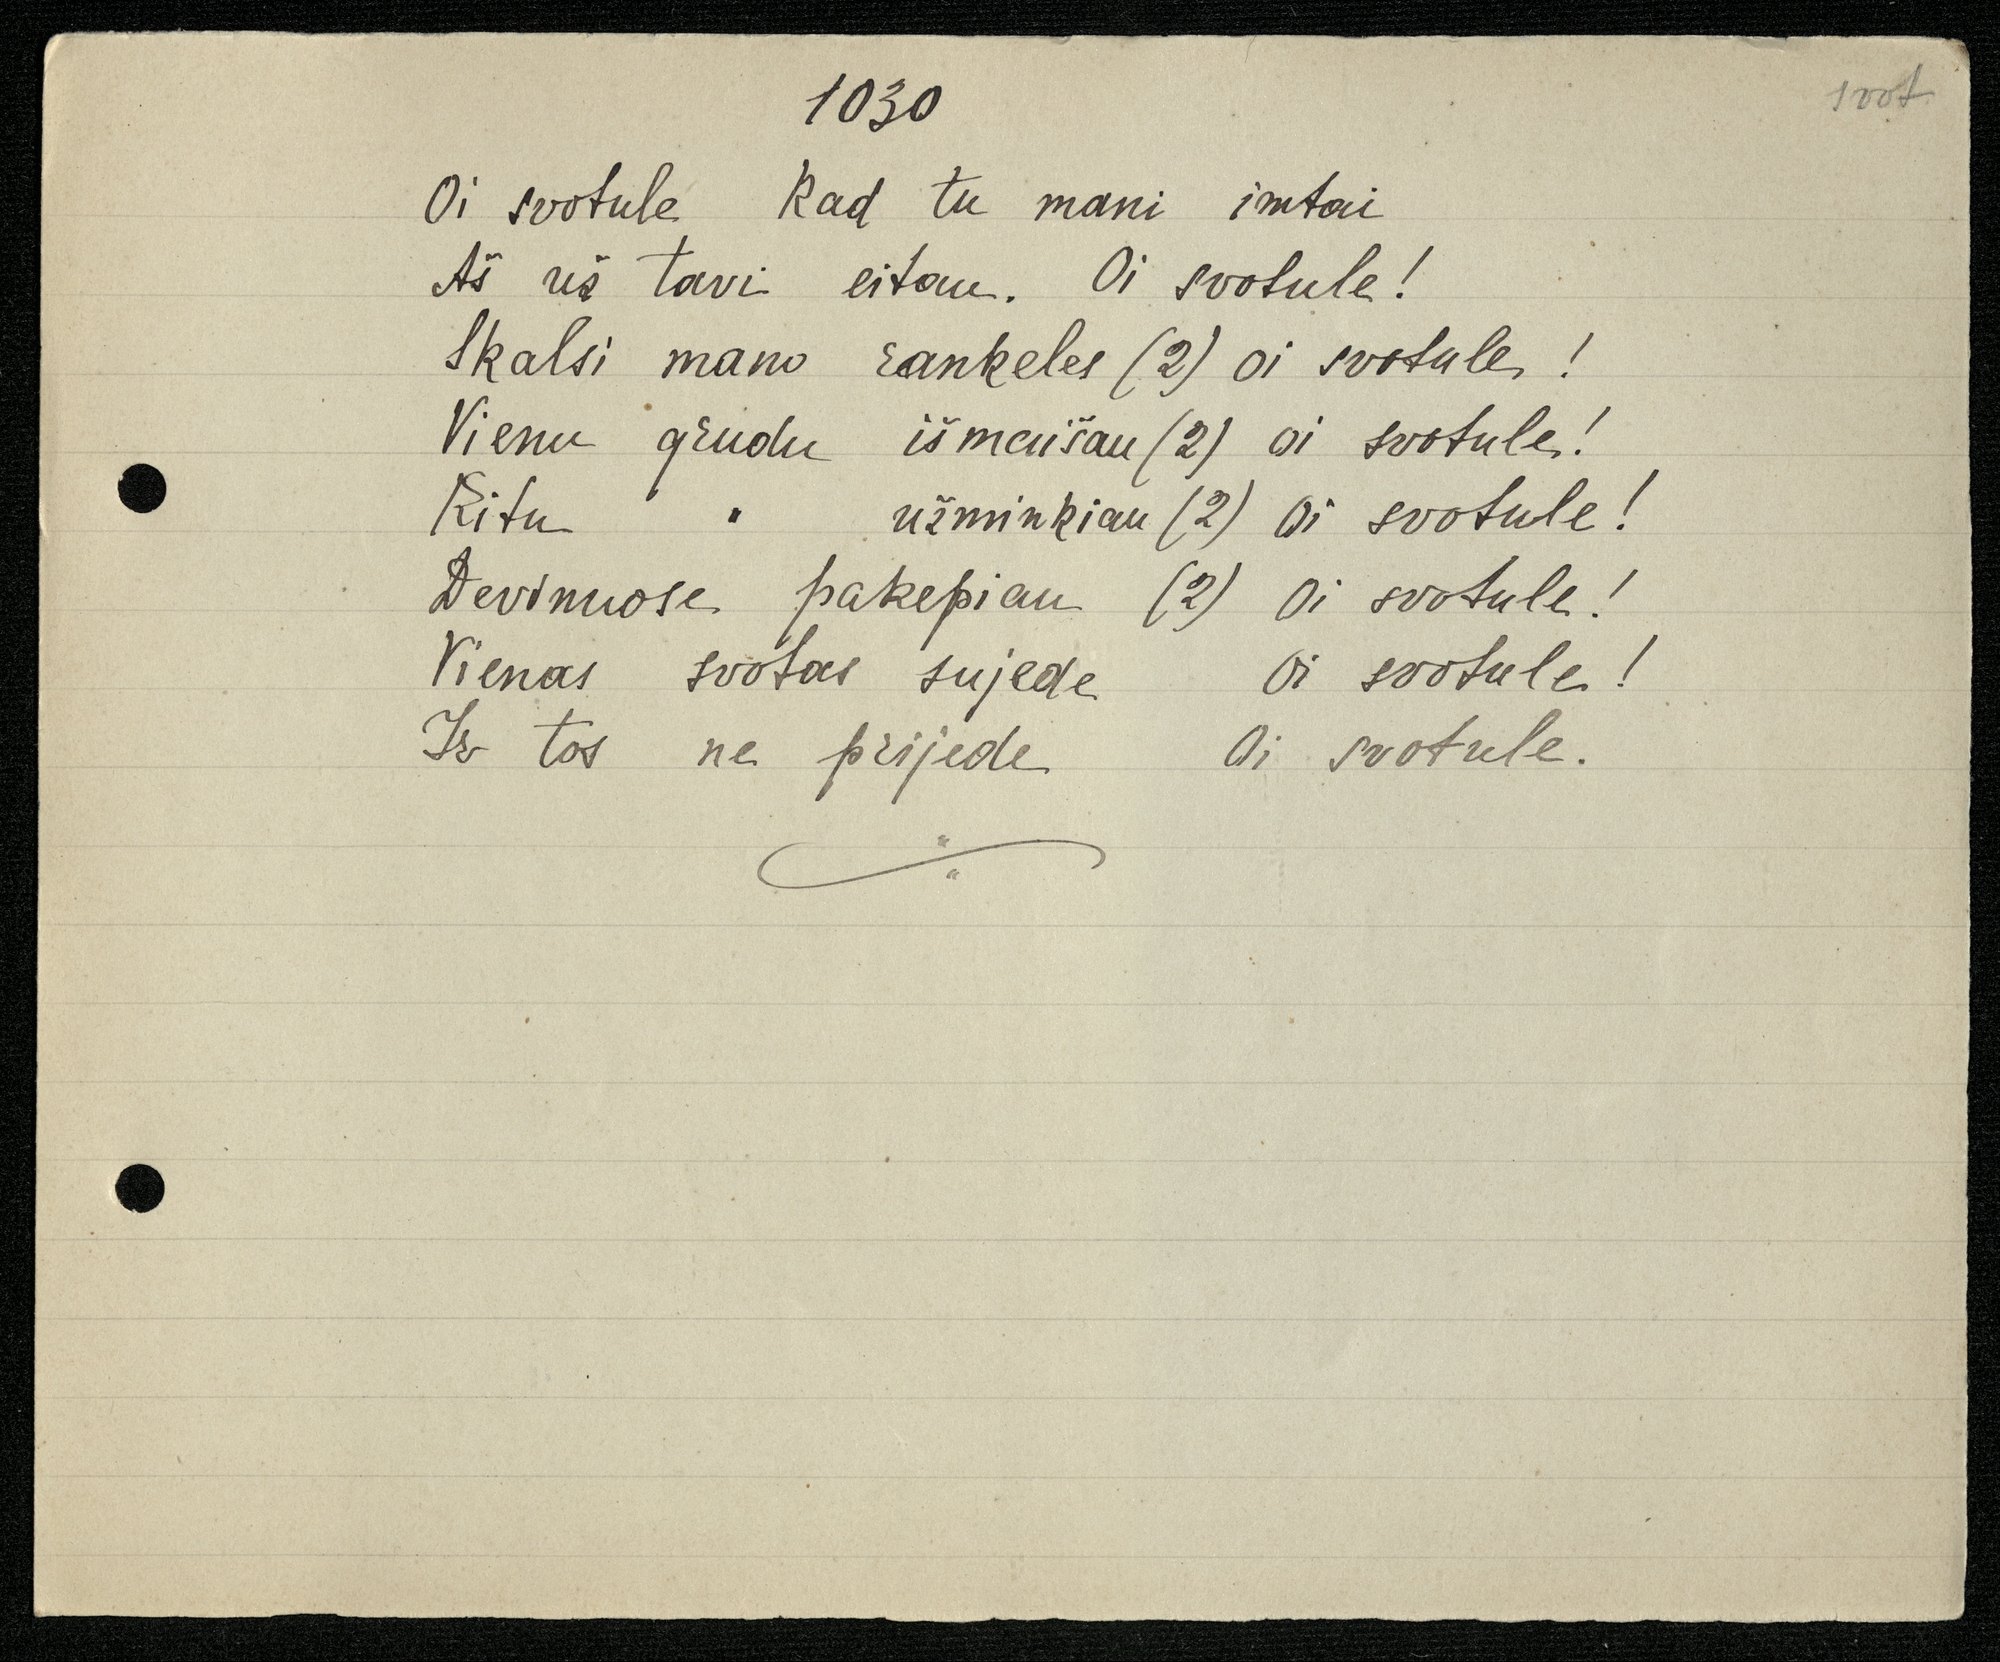 1030
svot.
Oi svotule Kad tu mani imtai
Aš už tavi eitau. Oi svotule!
Skalsi mano rankeles (2) oi svotule!
Vienu grudu išmaišau (2) oi svotule!
Kitu " užminkiau (2) Oi svotule!
Devinuose pakepiau (2) Oi svotule!
Vienas svotas sujede Oi svotule!
Ir tos ne prijede Oi svotule.